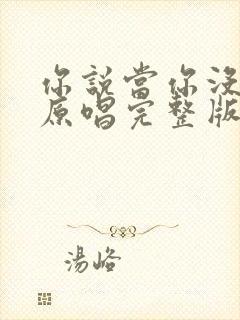 你說當你沒
原唱完整版
湯峪